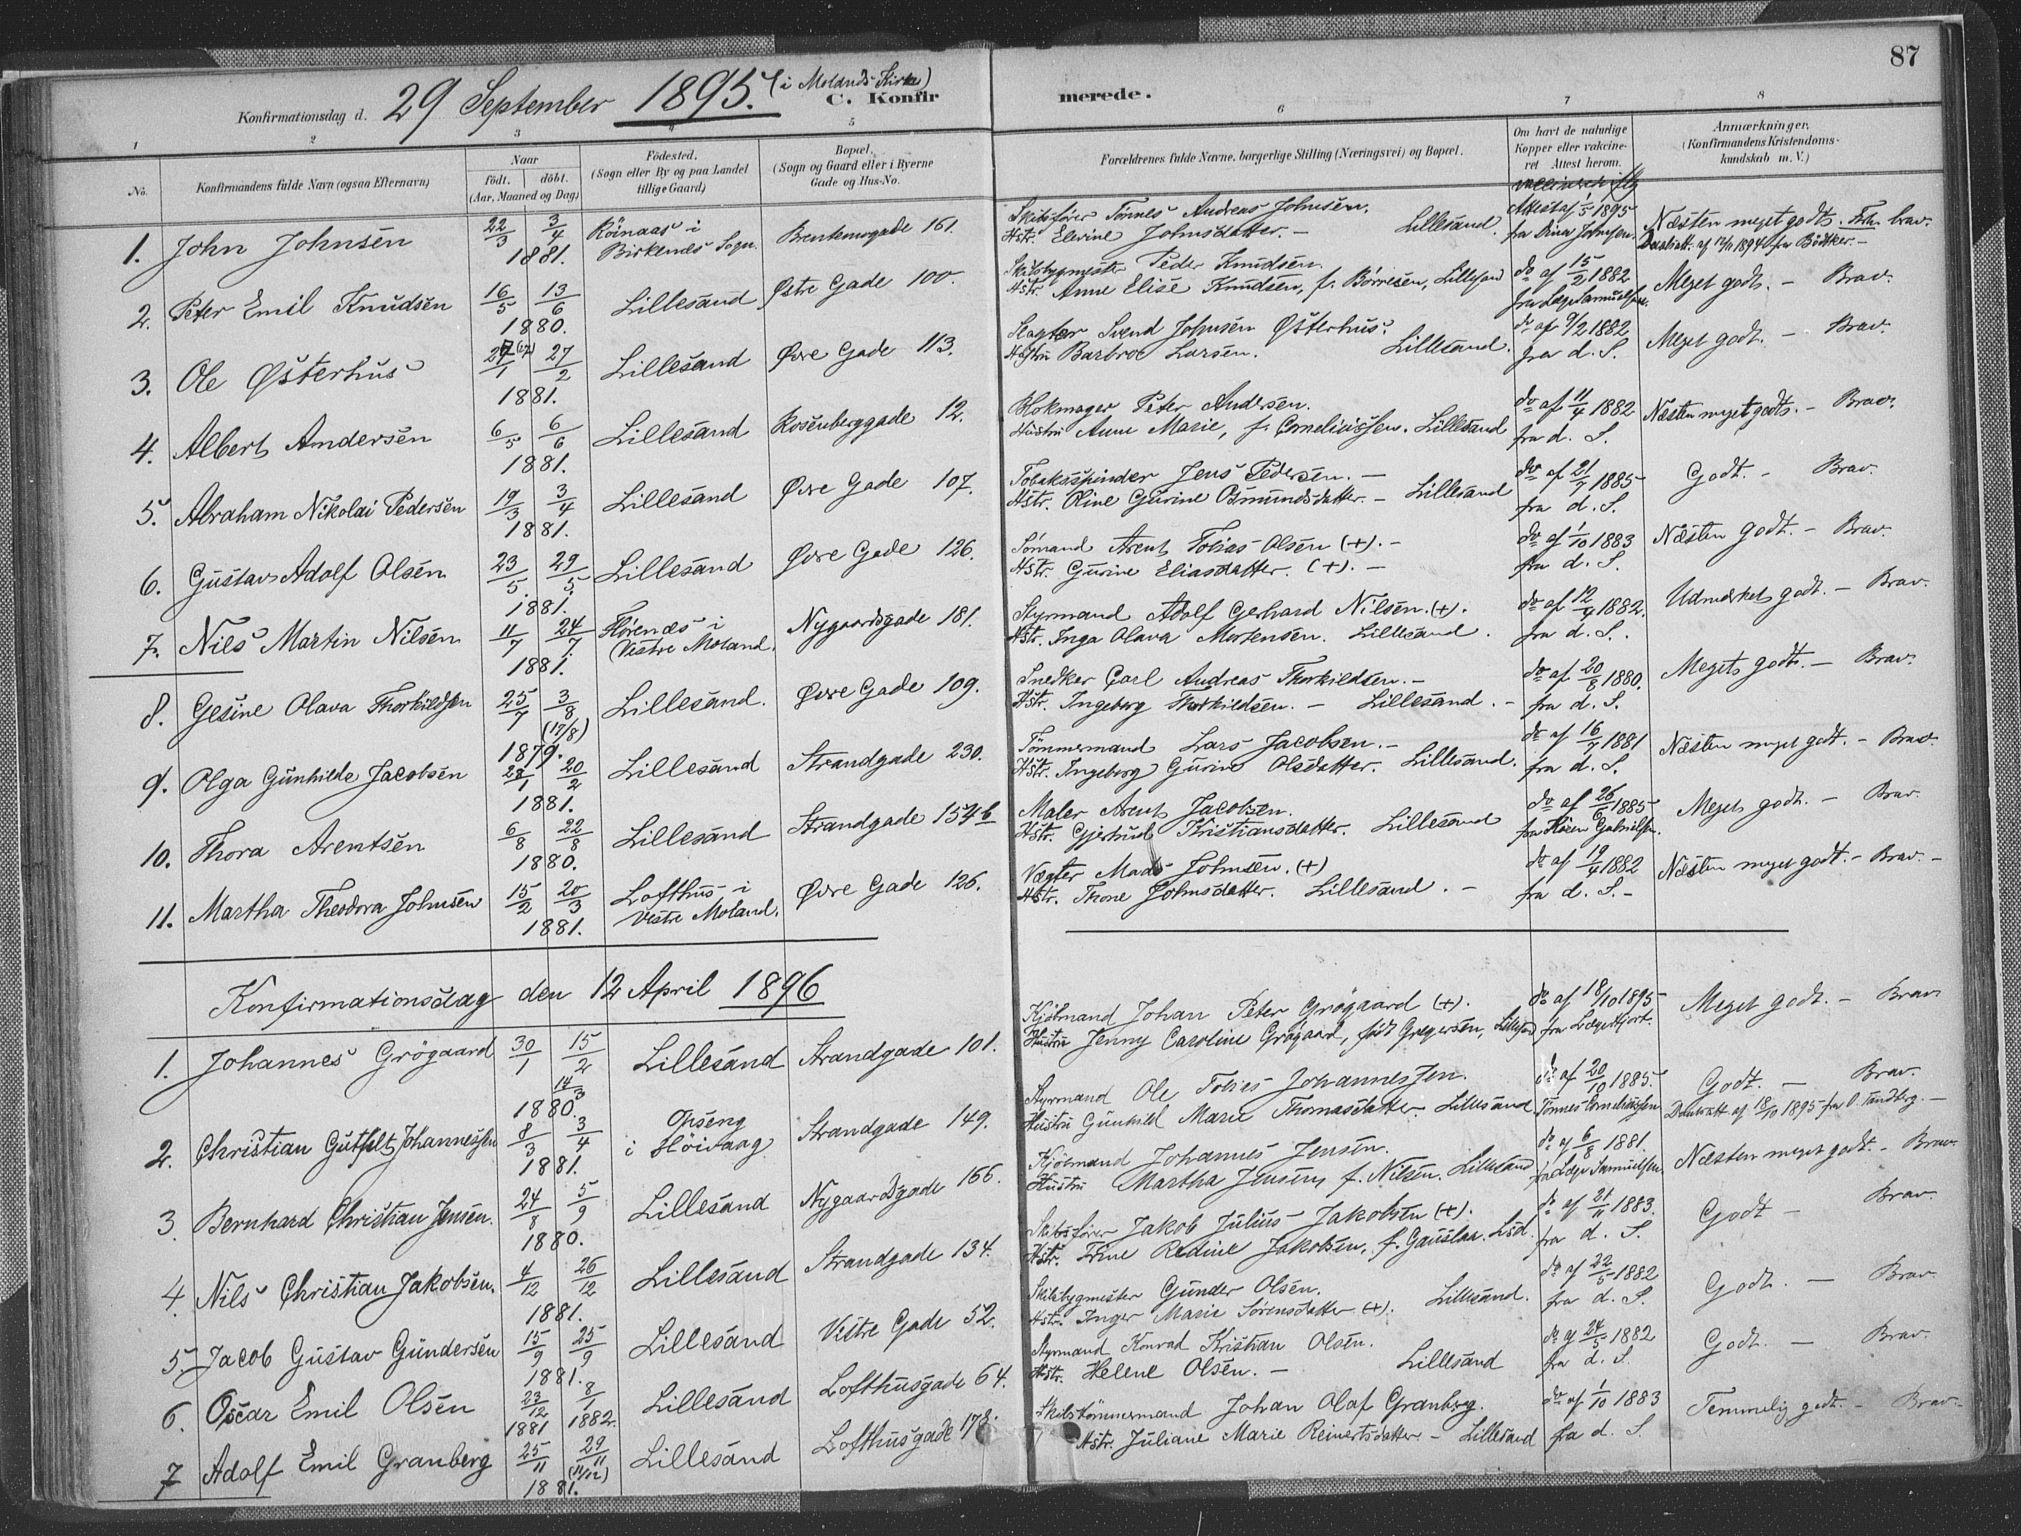 87
Konfirmationsdag d. 29 September 1895. (i Molands Kirke)
C. Konfirmerede.
1 2 3 4 5 6 7 8
No.
Konfirmandens fulde Navn (ogsaa Efternavn)
Naar
födt. döbt.
(Aar, Maaned og Dag)
Födested.
(Sogn eller By og paa Landet
tillige Gaard)
Bopæl.
(Sogn og Gaard eller i Byerne
Gade og Hus-No.
Forældrenes fulde Navne, borgerlige Stilling (Næringsvei) og Bopæl.
Om havt de naturlige
Kopper eller vakcine-
ret Attest herom.
Anmærkninger.
(Konfirmandens Kristendoms-
kundskab m. V.)
1. John Johnsen 22/3 3/4 1881. Rönaas i Birkenes Sogn. 161.
Skibsfører Tönnes Andreas Johnsen.
Hstr. Elevine Johnsdatter. – Lillesand.
Attest af 1/5 1895 fra Dina Johnsen.
Næsten meget godt. brav.
2. Peter Emil Knudsen 16/5 13/6 1880. Lillesand Østre Gade 100.
Skibsbygmester Peder Knudsen.
Hstr. Anne Elise Knudsen, f. Börresen, Lillesand
do af 15/2 1882 fra Læge Samuelsen.
Meget godt. – Brav.
3. Ole Østerhus 27/2 1881. Lillesand Øvre Gade 113.
Slagter Svend Johnsen Østerhus.
Hustru Barbroe Larsen. Lillesand.
do af 9/2 1882 fra d. S.
Meget godt. – Brav.
4. Albert Andersen 6/5 6/6 1881. Lillesand Rosenberggade 12.
Blokmager Peter Andersen.
Hustru Anne Marie, f. Corneliussen. Lillesand
do af 11/4 1882 fra d. S.
Næsten meget godt. – Brav.
5. Abraham Nikolai Pedersen 19/3 3/4 1881. Lillesand Øvre Gade 107.
Tobaksspinder Jens Pedersen. –
Hstr. Oline Gurine Osmundsdatter. – Lillesand
do af 21/7 1885 fra d. S.
Godt. – Brav.
6. Gustav Adolf Olsen 23/5 29/5 1881. Lillesand Øvre Gade 126.
Sömand Arent Tobias Olsen (+). –
Hstr. Gurine Eliasdatter. (+). –
do af 1/10 1883 fra d. S.
Næsten godt. – Brav.
7. Nils Martin Nilsen 11/7 24/7 1881. i Vestre Moland. Nygaardsgade 181.
Styrmand Adolf Gerhard Nilsen. (+).
Hstr. Inga Olava Mortensen. Lillesand.
do af 12/4 1882. fra d. S.
Udmærket godt. – Brav.
8. Gesine Olava Thorkildsen 25/7 3/8 (17/8) 1879. Lillesand. Øvre Gade 109.
Snedker Carl Andreas Thorkildsen. –
Hstr. Ingeborg Thorkildsen. – Lillesand. –
do af 20/8 1880. fra d. S.
Meget godt. – Brav.
9. Olga Gunhilde Jacobsen 28/1 20/2 1881. Lillesand Strandgade 230.
Tömmermand Lars Jacobsen. –
Hstr. Ingeborg Gurine Olsdatter. Lillesand.
do af 16/7 1881 fra d. S.
Næsten meget godt. – Brav.
10. Thora Arentsen 6/8 22/8 1880. Lillesand Strandgade 154b
Maler Arent Jacobsen.
Hstr. Gjertrud Kristiansdatter. Lillesand
do af 26/6 1885 fra Gabrielsen.
Meget godt. – Brav.
11. Martha Theodora Johnsen 15/2 20/3 1881. Lofthus i Vestre Moland. Øvre Gade 126.
Vægter Mads Johnsen. (+)
Hstr. Thone Johnsdatter. Lillesand. –
do af 19/4 1882 fra d. S. –
Næsten meget godt. – Brav. –
Konfirmationsdag den 12 April 1896
1. Johannes Grögaard 30/1 15/2 14/3 1880. Lillesand Strandgade 101.
Kjöbmand Johan Peter Grögaard (+).
Hustru Jenny Caroline Grögaard, född Gregersen, Lillesand
do af 18/10 1895 fra Læge Hjort.
Meget godt. – Brav.
2. Christian Gutfelt Johannessen 8/3 3/4 1881. i Höivaag Strandgade 149.
Styrmand Ole Tobias Johannessen.
Hustru Gunhild Marie Thomasdatter. Lillesand
do af 20/10 1885. Tönnes Corneliussen
Godt. – Brav.
Daabsatt. af 18/10 1895 fra O. Tandberg. –
3. Bernhard Christian Jensen. 24/8 5/9 1880. Lillesand Nygaardsgade 166.
Kjöbmand Johannes Jensen.
Hustru Martha Jensen, f. Nilsen. Lillesand
do af 6/8 1881. fra Læge Samuelsen.
Næsten meget godt. – Brav
4. Nils Christian Jakobsen. 4/12 26/12 1881. Lillesand Strandgade 134.
Skibsfører Jakob Julius Jakobsen (+).
Hstr. Trine Redine Jakobsen, f. Gauslaa. Lsd.
do af 21/11 1883. fra d. S.
Godt – Brav.
5. Jacob Gustav Gundersen 15/9 25/9 1881. Lillesand Vestre Gade 52.
Skibsbygmester Gunder Olsen.
Hstr. Inger Marie Sörensdatter (+). Lillesand.
do af 22/5 1882 fra d. S.
Godt. – Brav.
6. Oscar Emil Olsen 23/12 1881 8/1 1882. Lillesand Lofthusgade 64.
Styrmand Konrad Kristian Olsen.
Hstr. Helene Olsen. – Lillesand
do af 24/5 1882 fra d. S.
Godt. – Brav.
7 Adolf Emil Granberg 25/11 29/11 (11/12) 1881. Lillesand Lofthusgade 178.
Skibstömmermand Johan Olaf Granberg.
Hstr. Juliane Marie Reinertsdatter – Lillesand
do af 1/10 1883 fra d. S.
Temmelig godt. – Brav. –